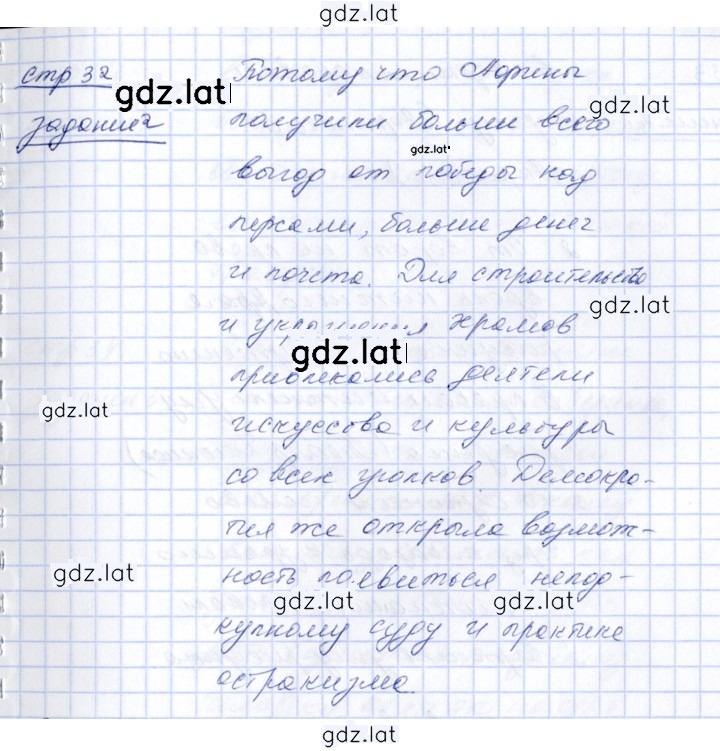 gdz.lat
стр 32
Потому что Афины
gdz.lat
gdz.lat
задание 2
получили больши всего
gdz.lat
выгод от победы над
персами, больше денег
и почета. Для строительства
gdz.lat
и украшения храмов
gdz.lat
привлекались деятели
gdz.lat
искусства и культуры
со всех уголков. Демокра-
тия же открыла возмож-
gdz.lat
ность появиться непод-
gdz.lat
gdz.lat
купному суду и практике
остракизма.
gdz.lat